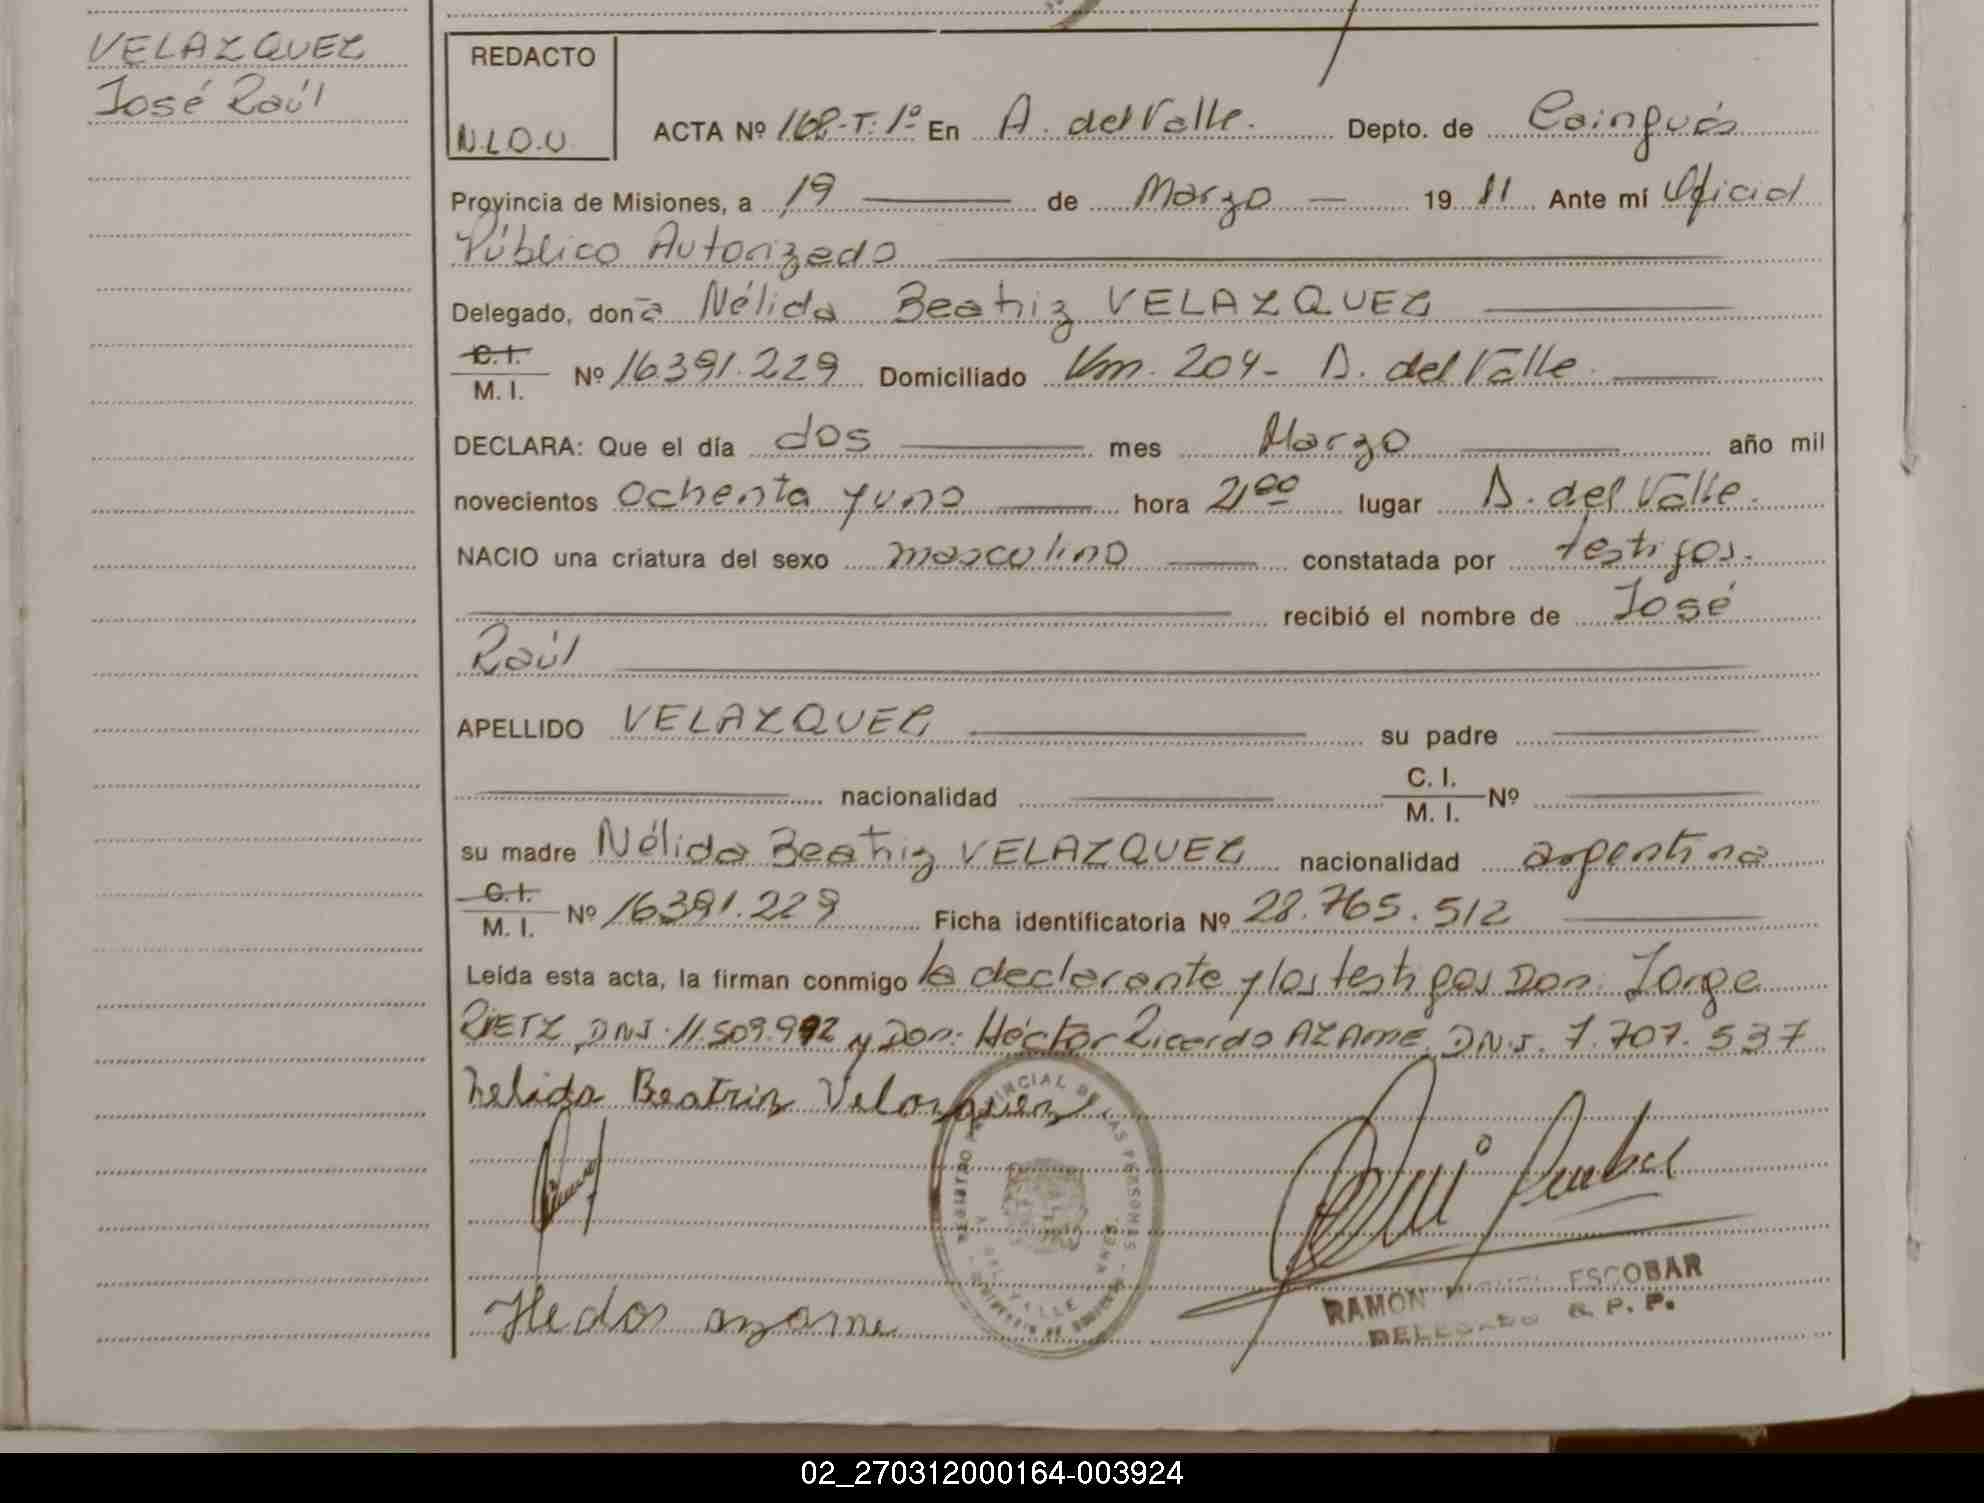 VELAZQUEZ
José Raúl
REDACTO
N.L.O.V.
ACTA Nº 168-T: 1º En A. del Valle. Depto. de Cainguás
Provincia de Misiones, a 19 de Marzo 19 81 Ante mí Oficial
Público Autorizado
Delegado, don a Nélida Beatriz VELAZQUEZ
C.I. M. I. Nº 16.391.229 Domiciliado Km. 204- A. del Valle.
DECLARA: Que el día dos mes Marzo año mil
novecientos Ochenta y uno hora 21 00 lugar A. del Valle.
NACIO una criatura del sexo masculino constatada por testigos.
recibió el nombre de José
Raúl
APELLIDO VELAZQUEZ su padre
nacionalidad C. I. M. I. Nº
su madre Nélida Beatriz VELAZQUEZ nacionalidad argentina
C.I. M. I. Nº 16.391.229 Ficha identificatoria Nº 28.765.512
Leída esta acta, la firman conmigo la declarante y los testigos Don: Jorge
RIETZ, DNJ. 11.509.992 y Don: Héctor Ricardo AZAME, DNJ. 7.707.537
Nelida Beatriz Velazquez
REGISTRO PROVINCIAL DE LAS PERSONAS
A. DEL VALLE
RAMON ESCOBAR
DELEGADO R. P. P.
azame
02_270312000164-003924